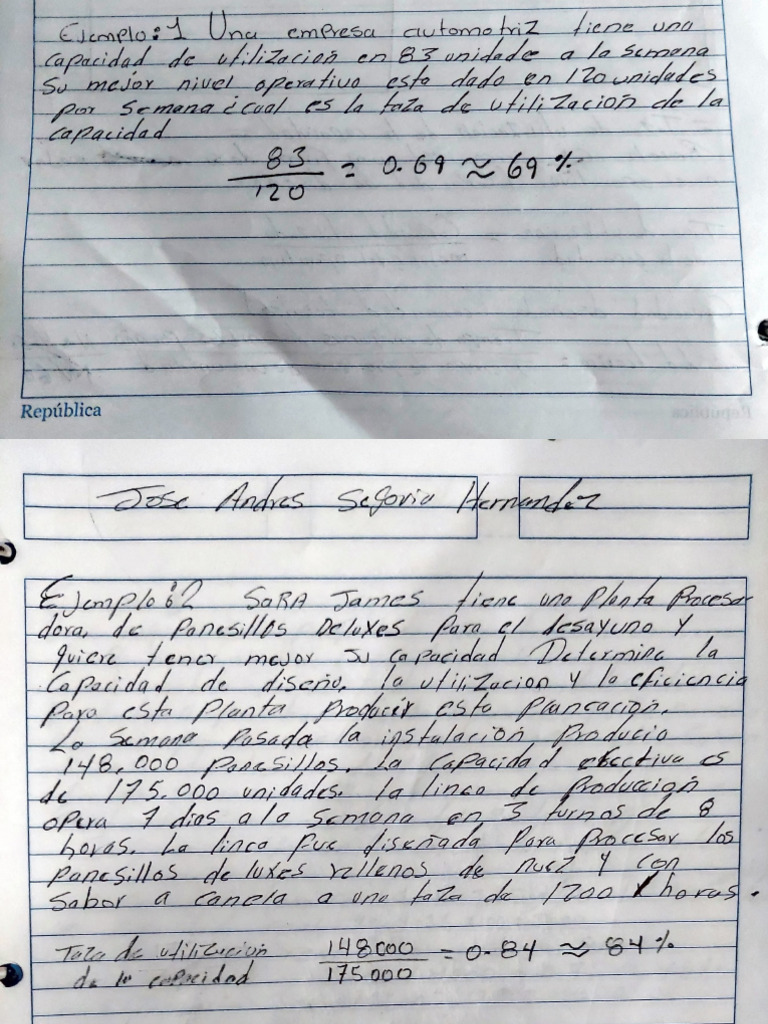 Ejemplo:1 Una empresa automotriz tiene una
capacidad de utilización en 83 unidade a la semana
Su mejor nivel operativo esta dado en 120 unidades
por semana ¿cual es la taza de utilización de la
capacidad
83
120
= 0.69 ≈ 69 %
República
Jose Andres Segovia Hernandez
Ejemplo:2 SARA James tiene una Planta Procesa
dora, de Panesillos Deluxes Para el desayuno y
quiere tener mejor su capacidad Determine la
Capacidad de diseño, la utilización y la eficiencia
Para esta Planta Producir esta Planeación.
La Semana Pasada la instalación Producio
148,000 Panesillos. La Capacidad efectiva es
de 175.000 unidades. la linea de Producción
opera 7 dias a la Semana en 3 turnos de 8
horas. La linea fue diseñada Para Procesar los
Panesillos de luxes rellenos de nuez y con
Sabor a Canela a una taza de 1200 x horas.
Taza de utilización
de la capacidad
148000
175000
= 0.84 ≈ 84 %